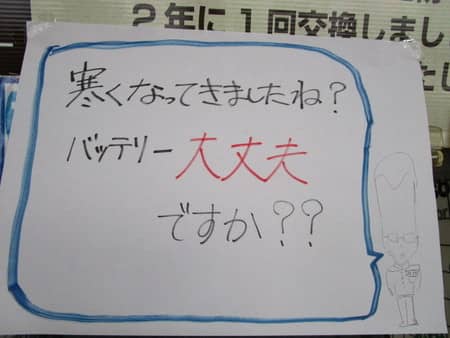 ２年に１回交換しまし
寒くなってきましたね？
バッテリー 大丈夫
ですか？？